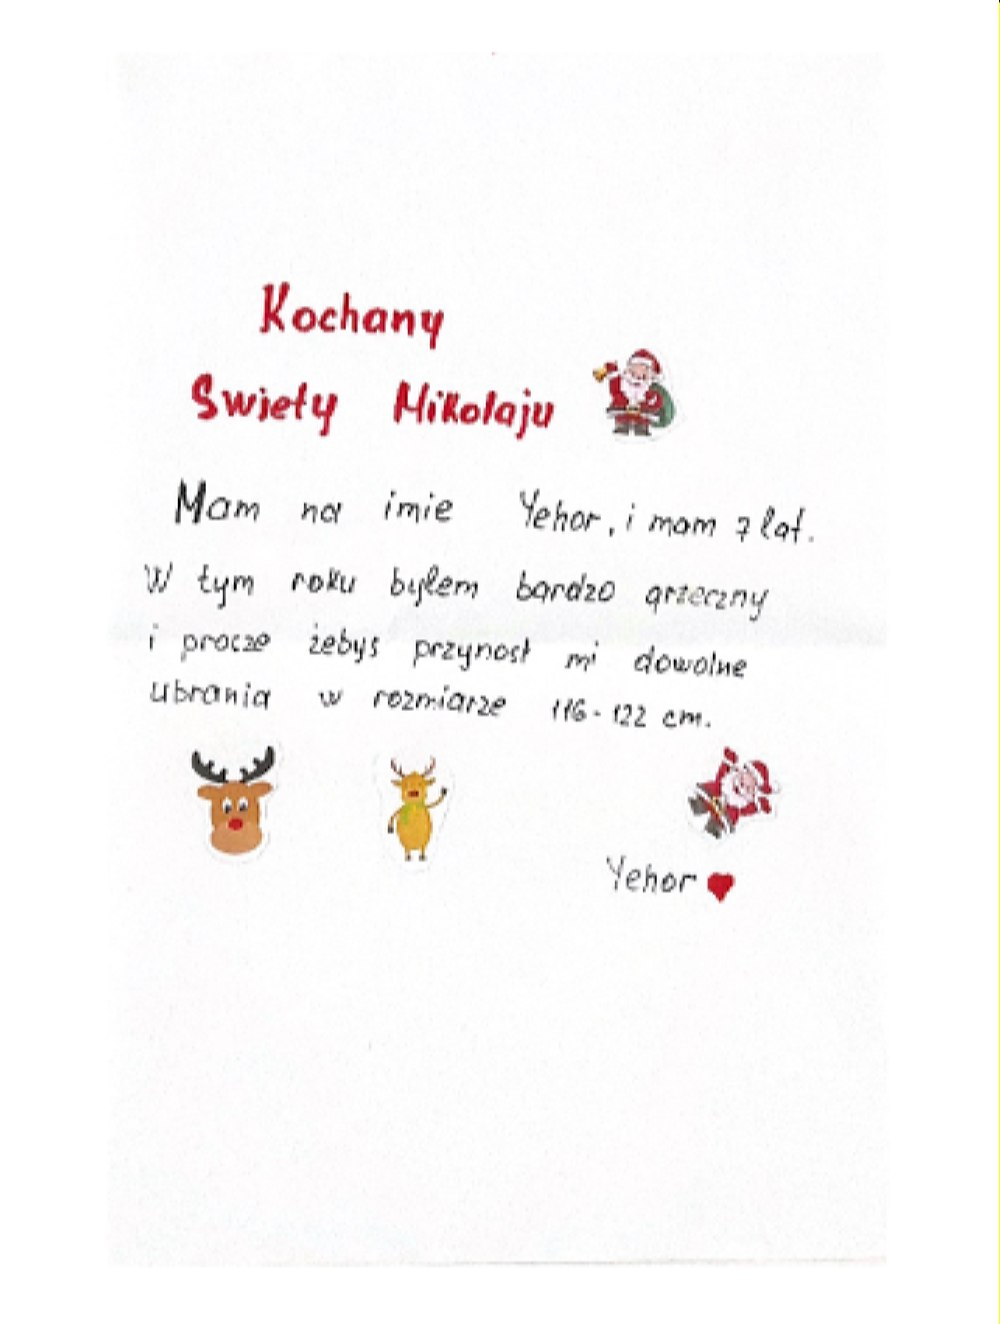 Kochany
Swiety Mikołaju
Mam na imie Yehor, i mam 7 lat.
W tym roku byłem bardzo grzeczny
i procze żebyś przynosł mi dowolne
ubrania w rozmiarze 116-122 cm.
Yehor